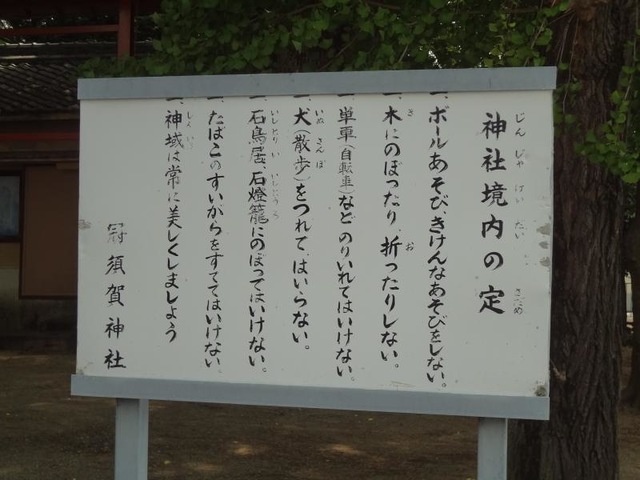 神社境内の定
一、ボールあそびきけんなあそびをしない。
一、木にのぼったり、折ったりしない。
一、単車(自転車)などのりいれてはいけない。
一、犬(散歩)をつれてはいらない。
一、石鳥居、石燈籠にのぼってはいけない。
一、たばこのすいがらをすててはいけない。
一、神域は常に美しくしましょう
須賀神社